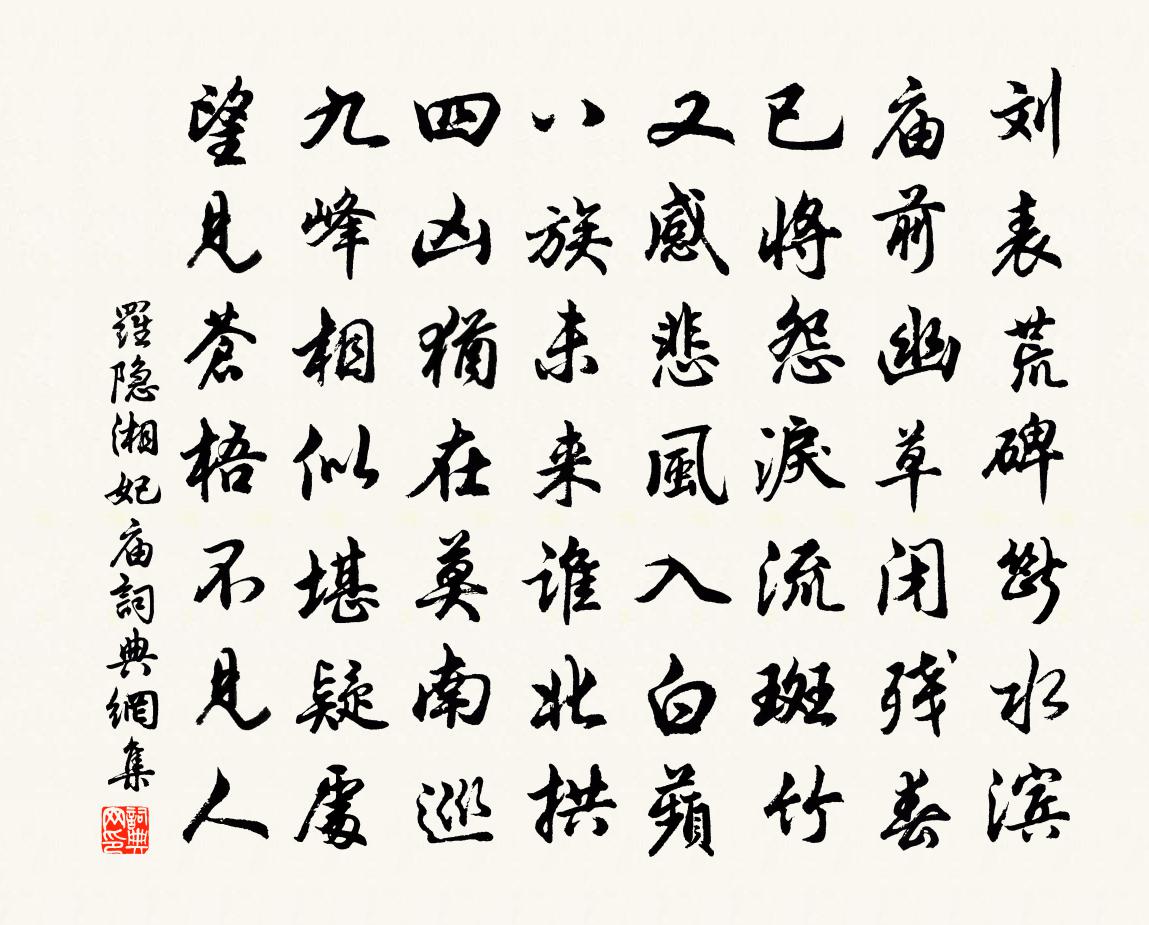 刘表荒碑断水滨
庙前幽草闭残春
已将怨泪流斑竹
又感悲風入白蘋
八族未来谁北拱
四凶猶在莫南巡
九峰相似堪疑處
望见蒼梧不见人
羅隐湘妃庙詞典網集
詞典网印